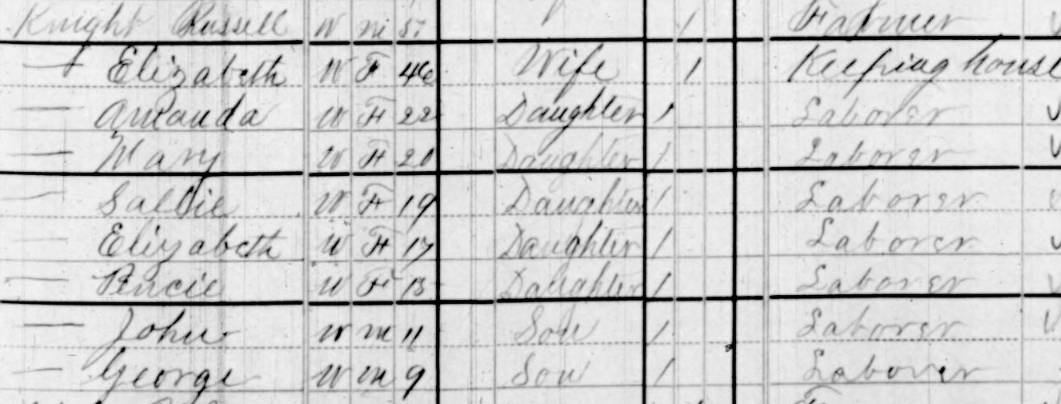 Knight Russell W M 51 / 1 Farmer
— Elizabeth W F 46 Wife 1 Keeping house
— Amanda W F 22 Daughter 1 Laborer
— Mary W F 20 Daughter 1 Laborer
— Sallie W F 19 Daughter 1 Laborer
— Elizabeth W F 17 Daughter 1 Laborer
— W F 15 Daughter 1 Laborer
— John W M 11 Son 1 Laborer
— George W M 9 Son 1 Laborer